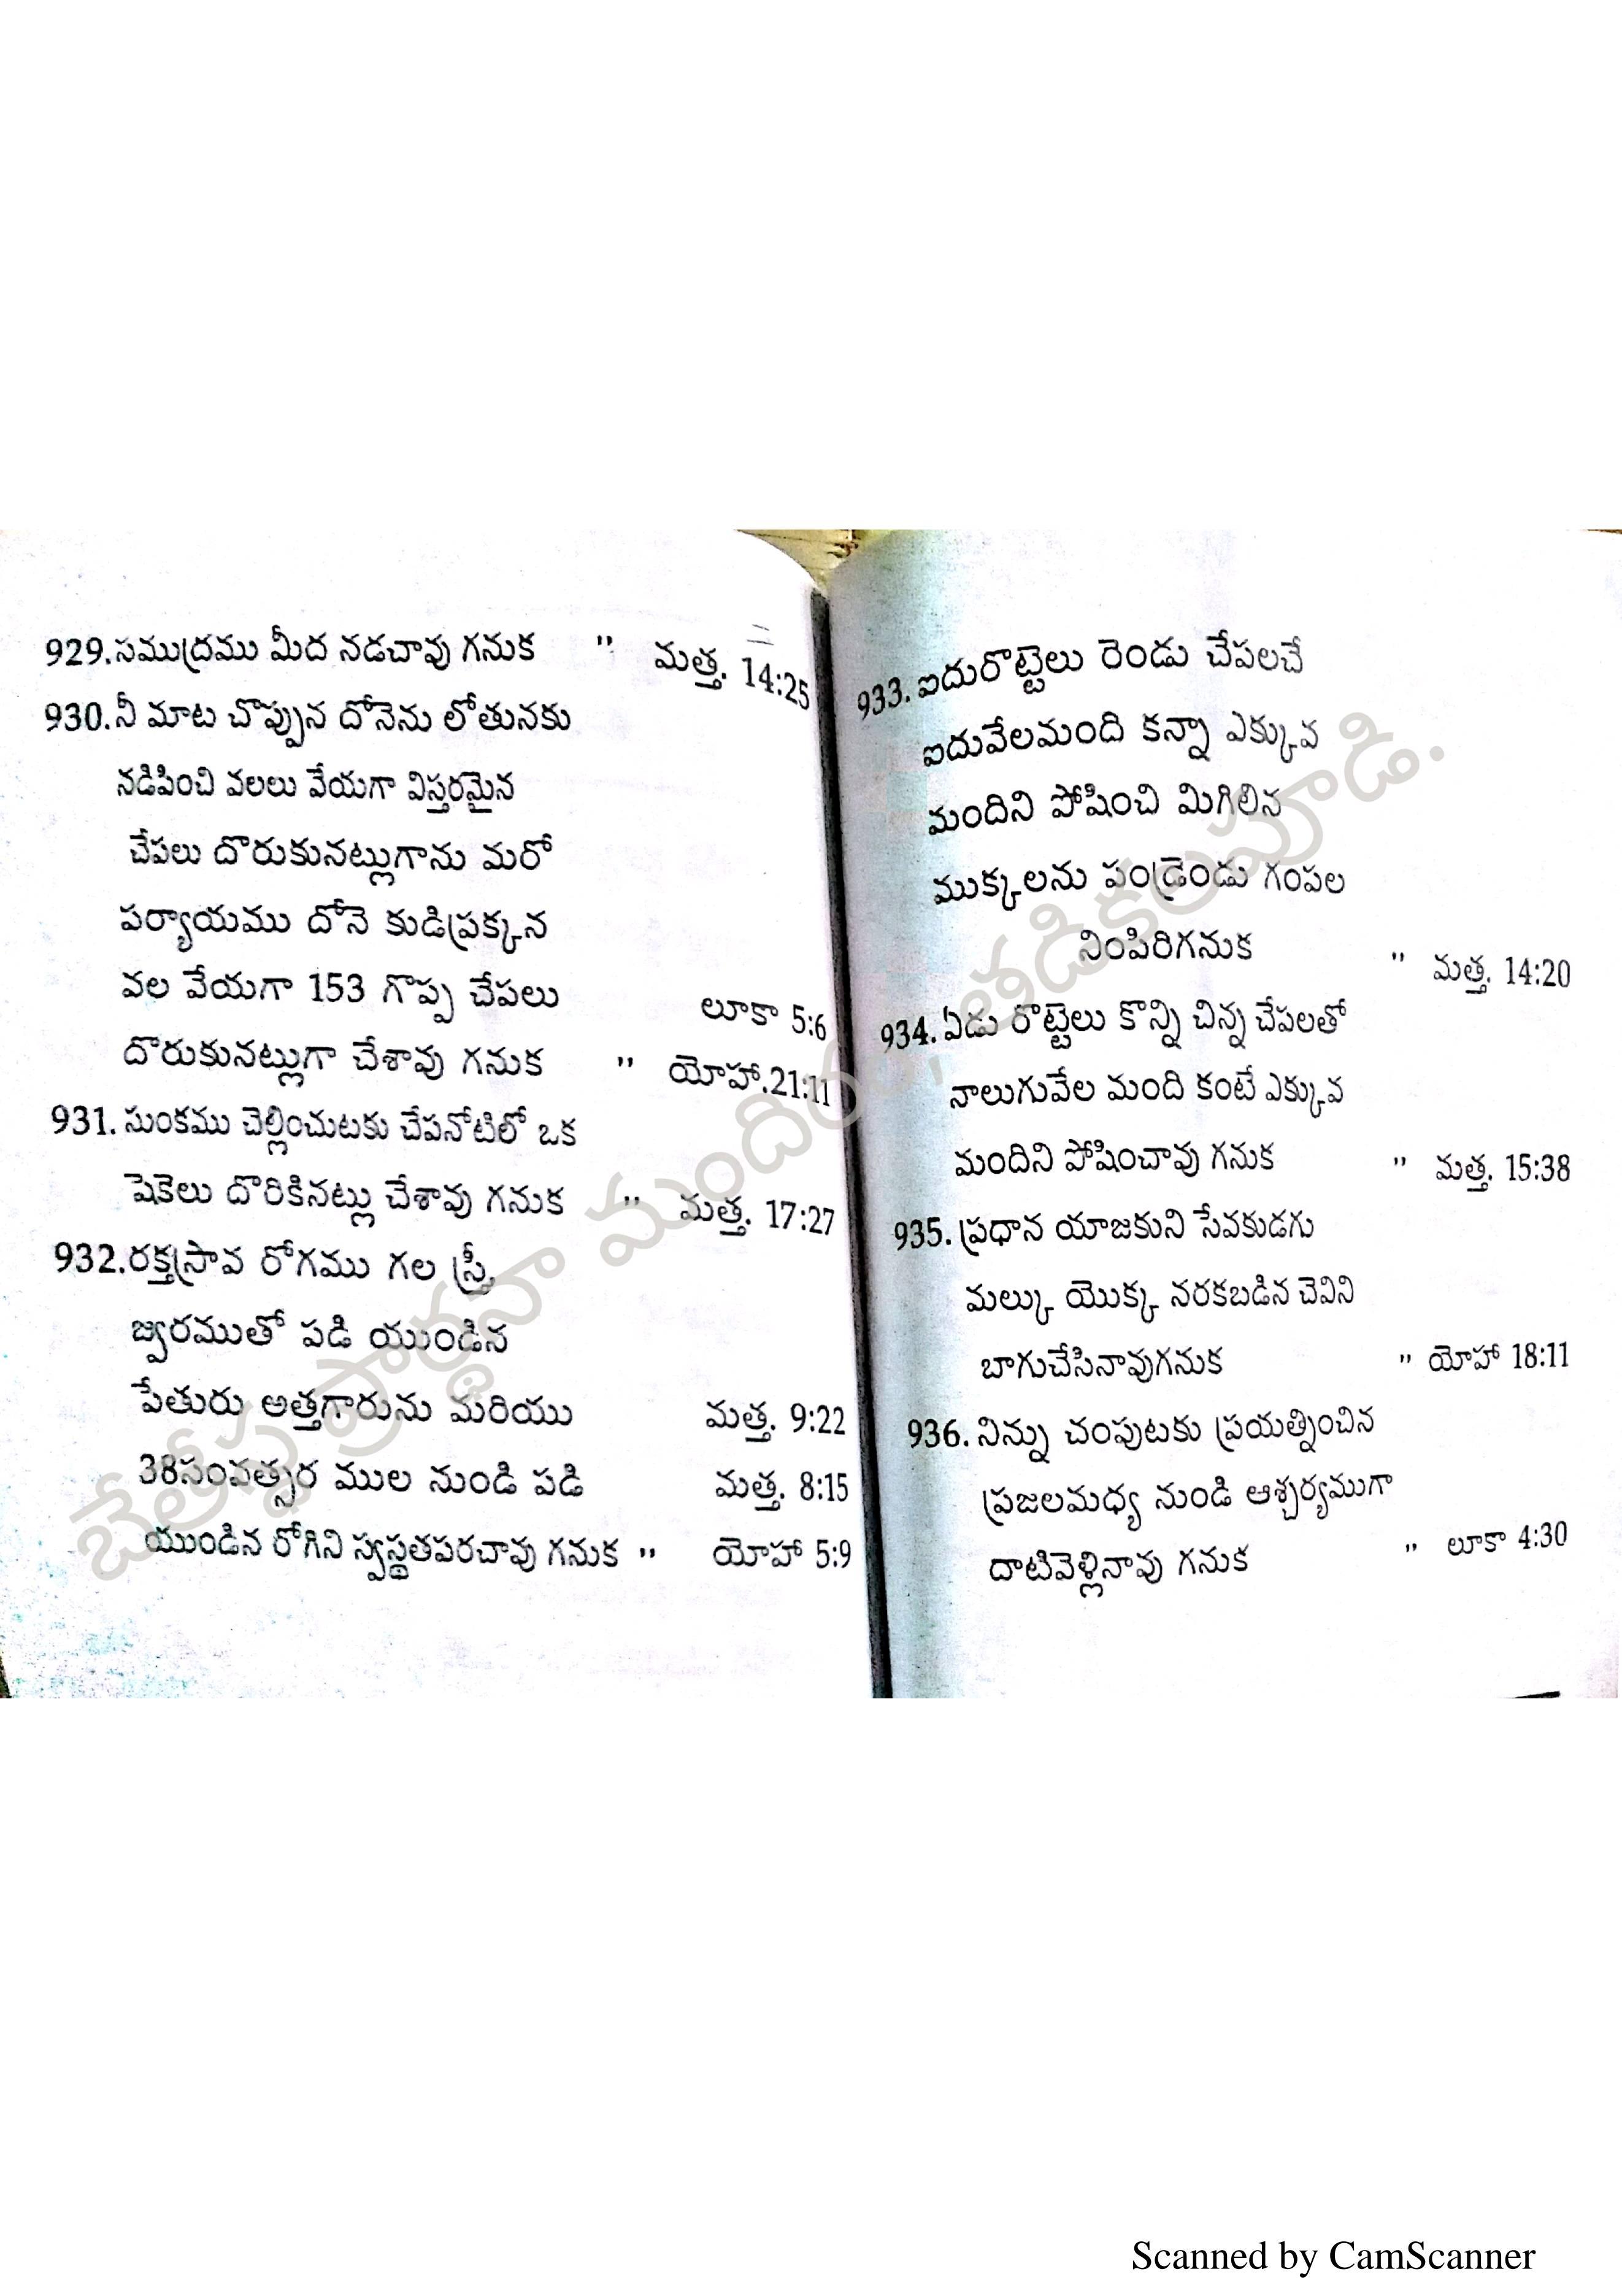 929.సముద్రము మీద నడచావు గనుక " మత్త. 14:25
930.నీ మాట చొప్పున దోనెను లోతునకు
నడిపించి వలలు వేయగా విస్తరమైన
చేపలు దొరుకునట్లుగాను మరో
పర్యాయము దోనె కుడిప్రక్కన
వల వేయగా 153 గొప్ప చేపలు లూకా 5:6
దొరుకునట్లుగా చేశావు గనుక " యోహా.21:11
931. సుంకము చెల్లించుటకు చేపనోటిలో ఒక
షెకెలు దొరికినట్లు చేశావు గనుక " మత్త. 17:27
932.రక్తస్రావ రోగము గల స్త్రీ,
జ్వరముతో పడి యుండిన
పేతురు అత్తగారును మరియు మత్త. 9:22
38సంవత్సర ముల నుండి పడి మత్త. 8:15
యుండిన రోగిని స్వస్థతపరచావు గనుక " యోహా 5:9
933. ఐదురొట్టెలు రెండు చేపలచే
ఐదువేలమంది కన్నా ఎక్కువ
మందిని పోషించి మిగిలిన
ముక్కలను పండ్రెండు గంపల
నింపిరిగనుక " మత్త. 14:20
934. ఏడు రొట్టెలు కొన్ని చిన్న చేపలతో
నాలుగువేల మంది కంటే ఎక్కువ
మందిని పోషించావు గనుక " మత్త. 15:38
935. ప్రధాన యాజకుని సేవకుడగు
మల్కు యొక్క నరకబడిన చెవిని
బాగుచేసినావుగనుక " యోహా 18:11
936. నిన్ను చంపుటకు ప్రయత్నించిన
ప్రజలమధ్య నుండి ఆశ్చర్యముగా
దాటివెళ్లినావు గనుక " లూకా 4:30
ప్రార్థనా మందిరం, తాడికలమూడి.
Scanned by CamScanner